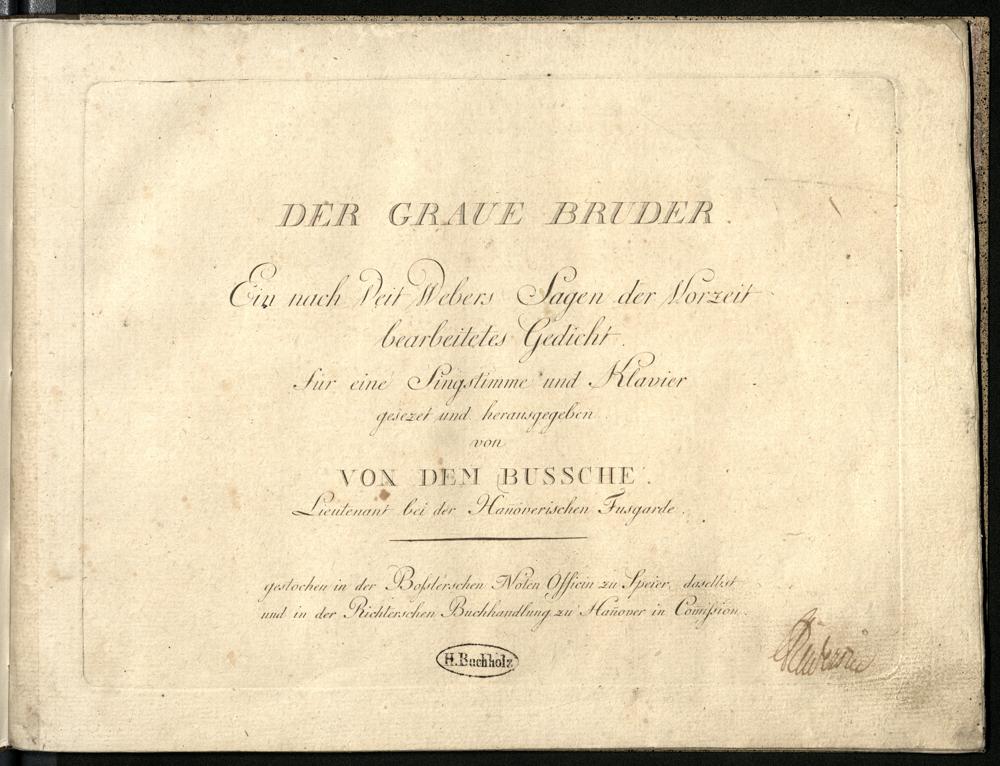 DER GRAUE BRUDER.
Ein nach Veit Webers Sagen der Vorzeit
bearbeitetes Gedicht.
für eine Singstimme und Klavier
gesezet und herausgegeben
von
VON DEM BUSSCHE.
Lieutenant bei der Hañöverischen Fusgarde.
gestochen in der Boßlerschen Noten Officin zu Speier, daselbst
und in der Richterschen Buchhandlung zu Hañover in Com̃ißion.
H. Buchholz